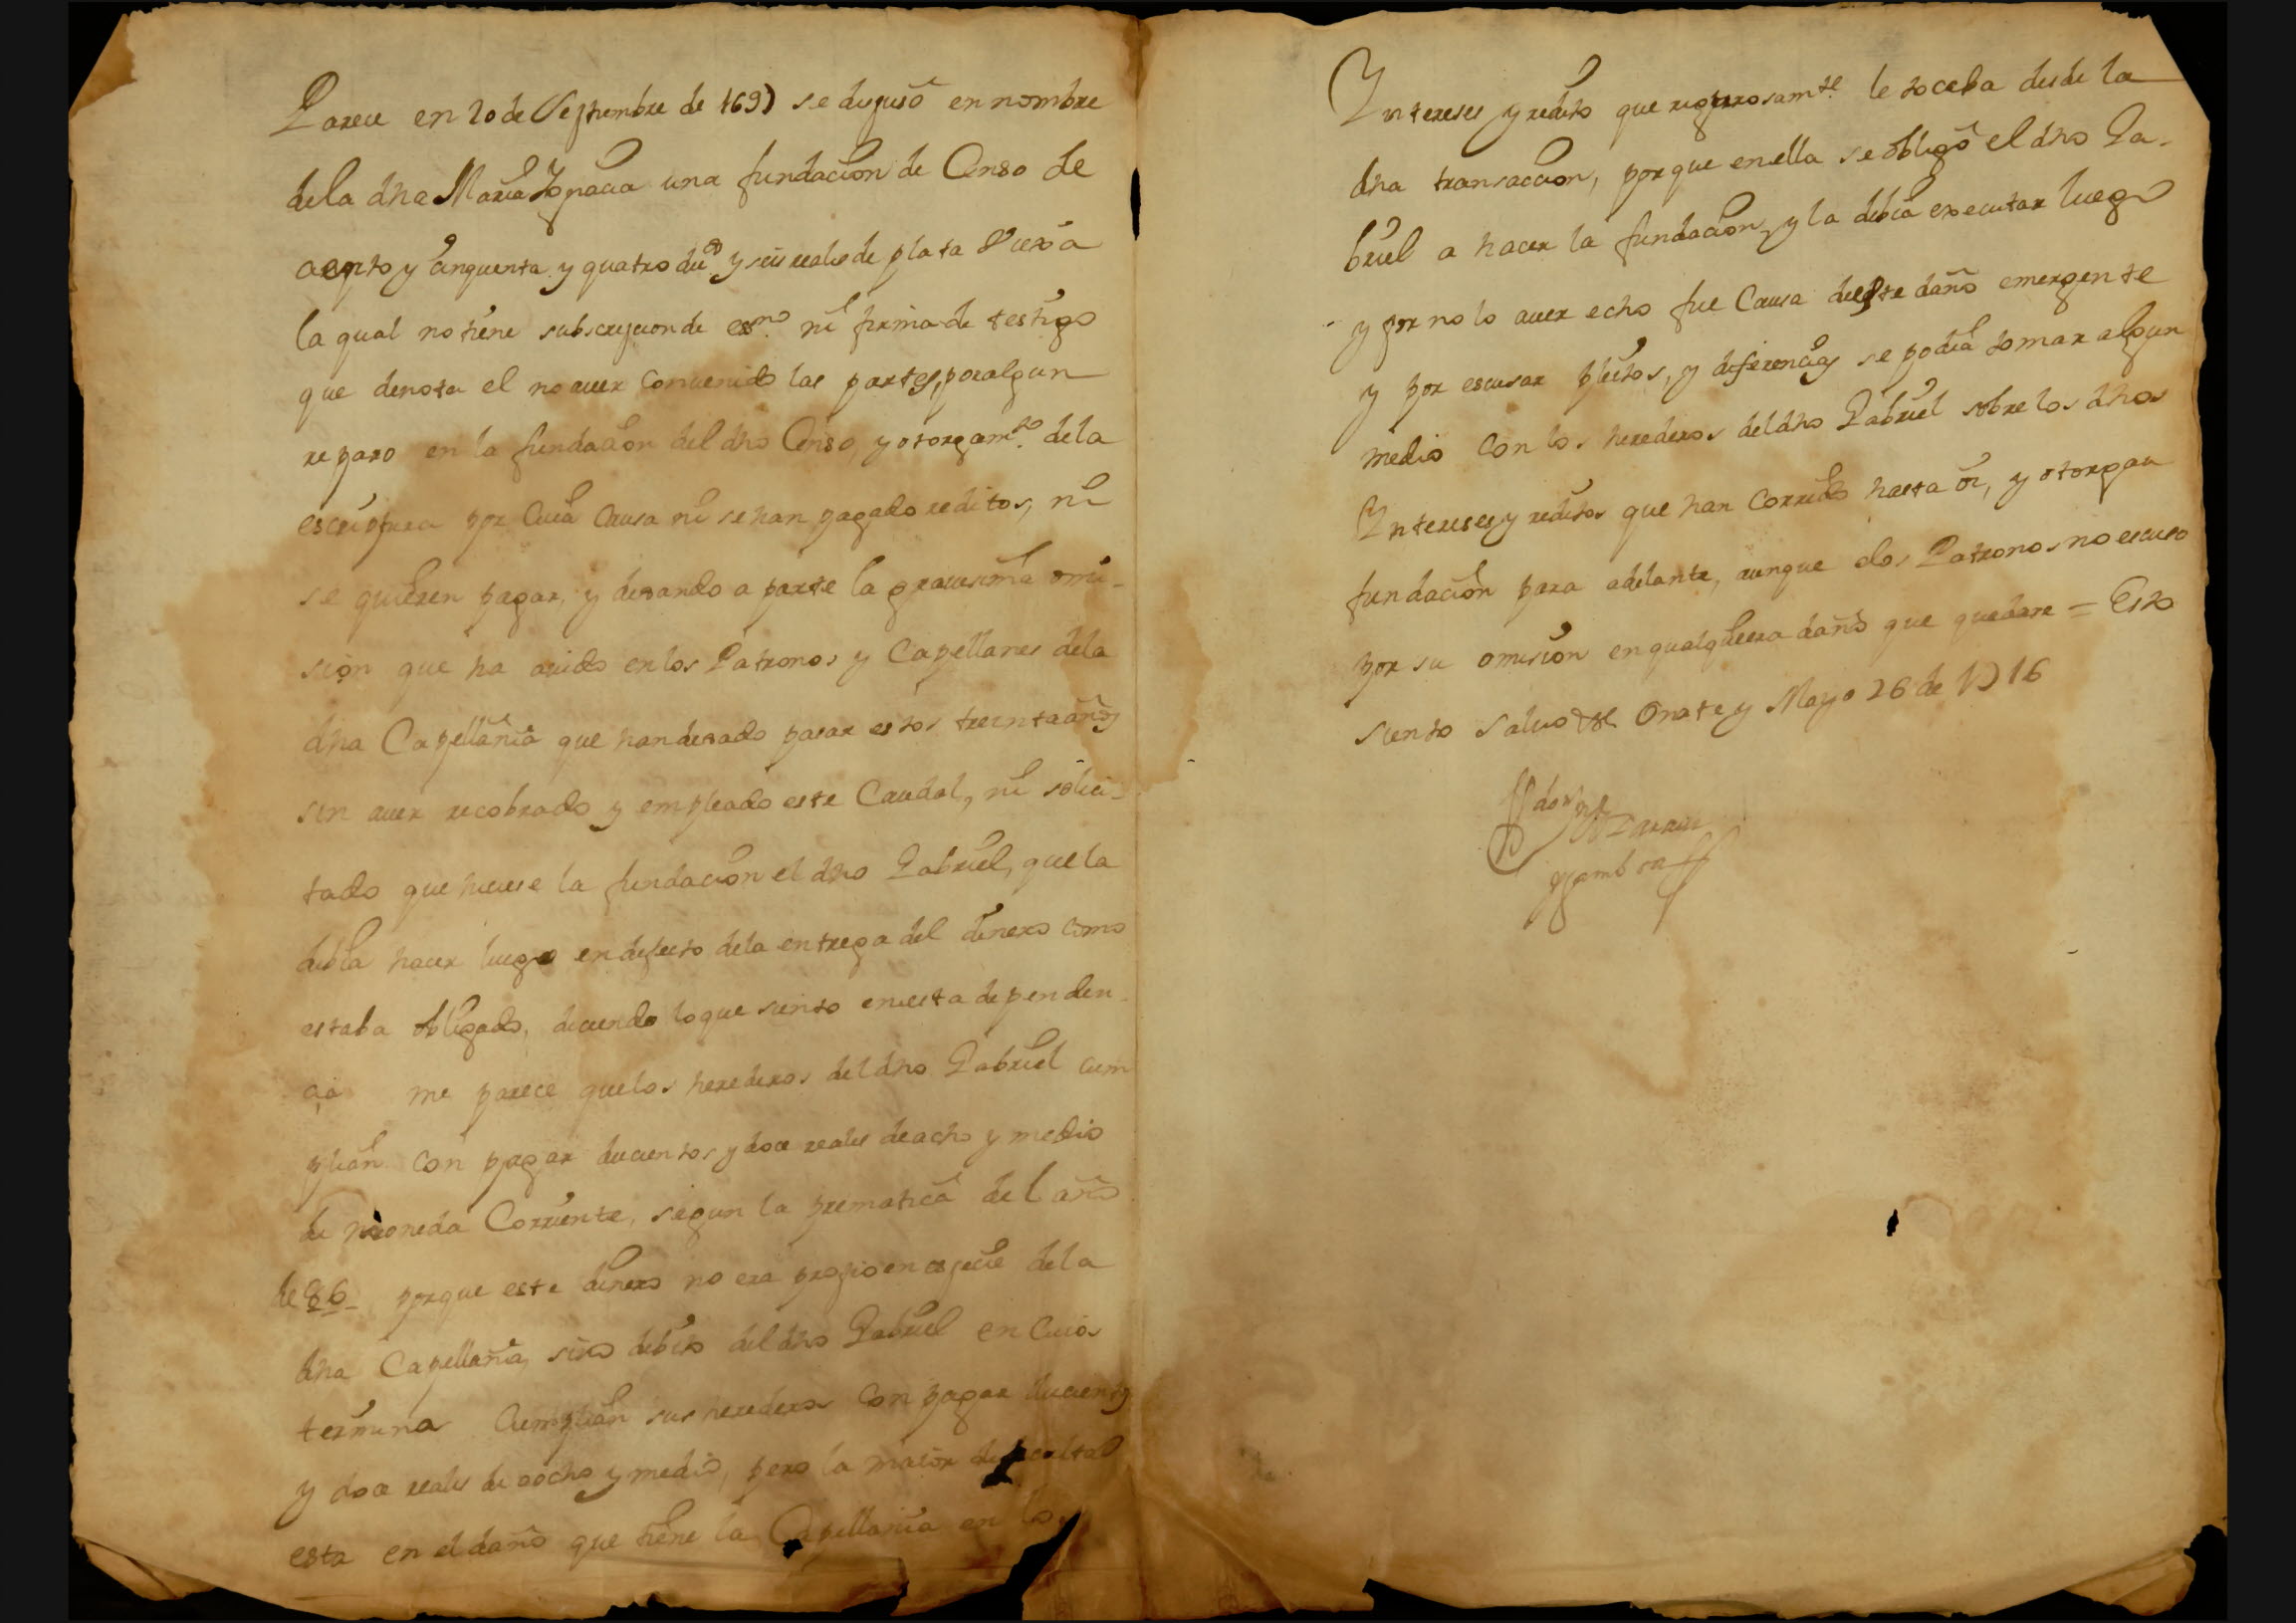 Parece en 20 de Septiembre de 1697 se dispuso en nombre
de la dha Maria Ygnacia una fundacion de Censo de
ciento y cinquenta y quatro du.os y seis reales de plata
la qual no tiene subscripcion de es.no ni firma de testigo
que denota el no auer conuenido las partes, por algun
reparo en la fundacion del dho Censo, y otorgam.to de la
escriptura por cuia causa ni se han pagado reditos, ni
se quieren pagar, y dexando a parte la grauissima omi-
sion que ha auido en los Patronos y Capellanes de la
dha Capellania que han dexado pasar estos treinta años
sin auer recobrado y empleado este Caudal, ni solici-
tado que hiciese la fundacion el dho Gabriel, que la
debia hacer luego en defecto de la entrega del dinero como
estaba obligado, diciendo lo que siento en esta dependen-
cia me parece que los herederos del dho Gabriel cum
plian con pagar ducientos y doce reales de a ocho y medio
de moneda Corriente, segun la prematica del año
de 86 porque este dinero no era propio en especie de la
dha Capellania, sino debito del dho Gabriel en cuios
termina cumplian sus herederos con pagar ducientos
y doce reales de a ocho y medio, pero la maior dificultad
esta en el daño que tiene la Capellania en los
Yntereses y redito que rigurosam.te le tocaba desde la
dha transaccion, porque en ella se obligò el dho Ga-
briel a hacer la fundacion, y la debia executar luego
y por no lo auer echo fue Causa de este daño emergente
y por escusar pleitos, y diferencias se podia tomar algun
medio con los herederos del dho Gabriel sobre los dhos
Yntereses y reditos que han corrido hasta oi, y otorgan
fundacion para adelante, aunque a los Patronos no escuso
por su omision en qualquiera daño que quedare = Esto
siento saluo &c. Oñate y Mayo 26 de 1716